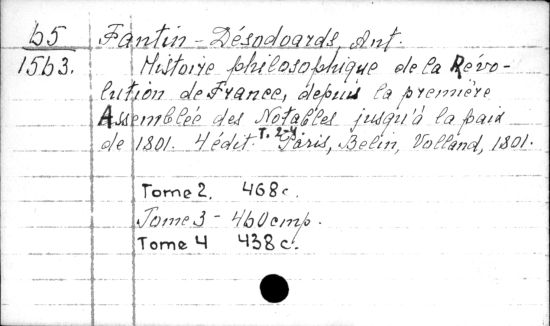 b5
1563.
Fantin-Désodoards, Ant.
Histoire philosophique de la Révo-
lution de France, depuis la première
Assemblée des Notables jusqu'à la paix
de 1801. 4 édit. T. 2-4 Paris, Belin, Volland, 1801.
Tome 2. 468 c.
Tome 3 - 460 cmp.
Tome 4 438 c.